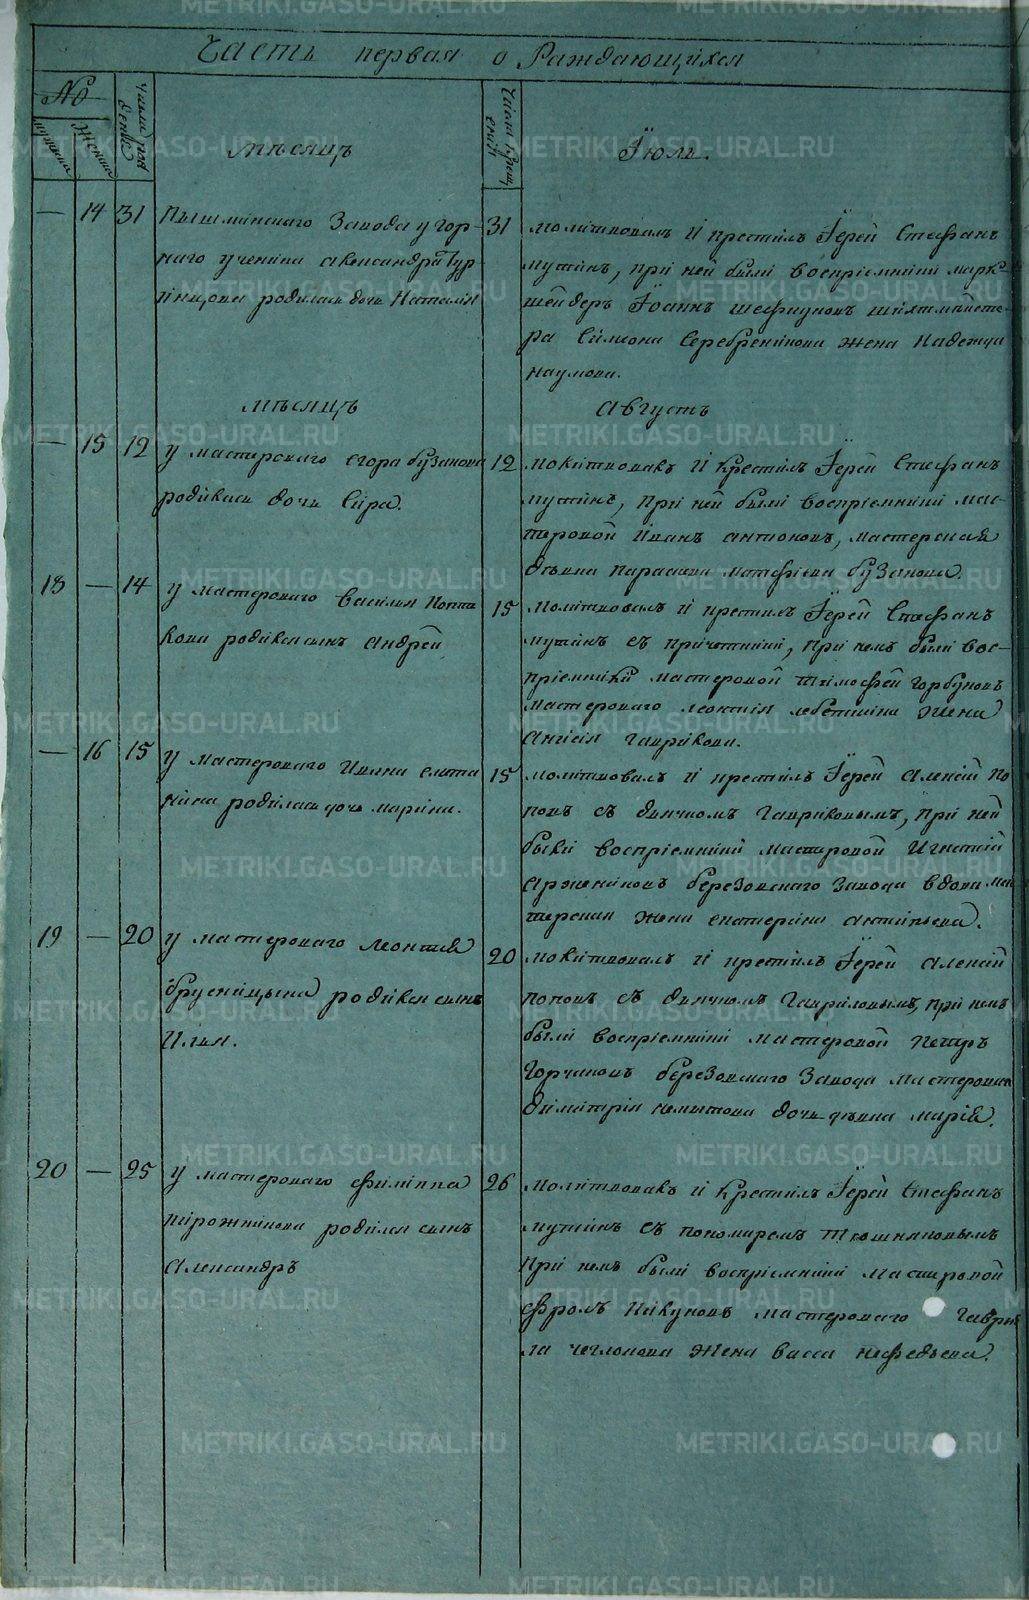 Часть первая о Раждающихся
№
мужеска
Женска
Числа рож
дения
мѣсяцъ
Числа крещ
ения
Їюль.
— 14 31 Пышминскаго Завода у Гор-
наго ученика Александра Тур
родилась дочь Наталiя
31 молитвовалъ и крестилъ Їерей Стефанъ
мутинъ, при ней были воспрiемники марк
шейдеръ Їоаннъ шихтмейсте-
ра Симеона Серебреникова жена Надежда
наумова.
мѣсяцъ
Августъ
— 15 12 у мастероваго егора бузанова
родилась дочь Сира.
12 молитвовалъ и крестилъ Їерей Стефанъ
мутинъ, при ней были воспрiемники мас-
теровой Иванъ антоновъ, мастерская
дѣвка параскева матфiева бузанова.
18 — 14 у мастероваго василья
кова родился сынъ андрей
15 молитвовалъ и крестилъ Їерей Стефанъ
мутинъ съ причетники, при немъ были вос-
прiемники мастеровой тимофей горбуновъ
мастероваго леонтiя жена
анисiя гаврилова.
— 16 15 у мастероваго Ивана
родилась дочь марина.
15 молитвовалъ и крестилъ Їерей алексiй по
повъ съ дьячкомъ гавриловымъ, при ней
были воспрiемники мастеровой Игнатiй
березовскаго завода вдова мас
терская жена екатерина антипьева.
19 — 20 у мастероваго леонтья
брусницына родился сынъ
Илья.
20 молитвовалъ и крестилъ Їерей алексiй
поповъ съ дьячкомъ гавриловымъ, при немъ
были воспрiемники мастеровой петръ
горчаковъ березовскаго завода мастероваго
димитрiя дочь дѣвка марiя.
20 — 25 у мастероваго филиппа
пирожникова родился сынъ
александръ
26 молитвовалъ и крестилъ Їерей стефанъ
мутинъ съ пономаремъ
при немъ были воспрiемники мастеровой
фролъ пикуновъ мастероваго гаври
ла жена васса нефедьева.
METRIKI.GASO-URAL.RU